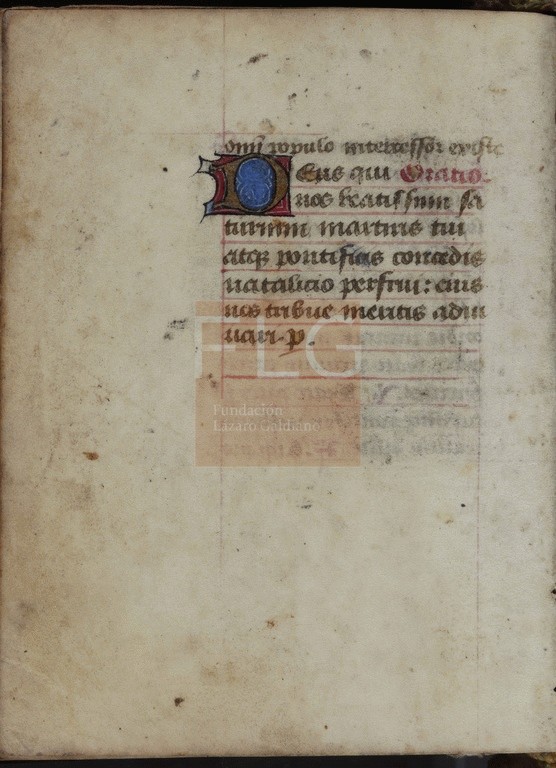 omni populo intercessor existe
Deus qui Oratio
nos beatissimi sa
turnini martiris tui
atq; pontificis concedis
natalicio perfrui: eius
nos tribue meritis adiu
uari. p.
FLG
Fundación
Lázaro Galdiano